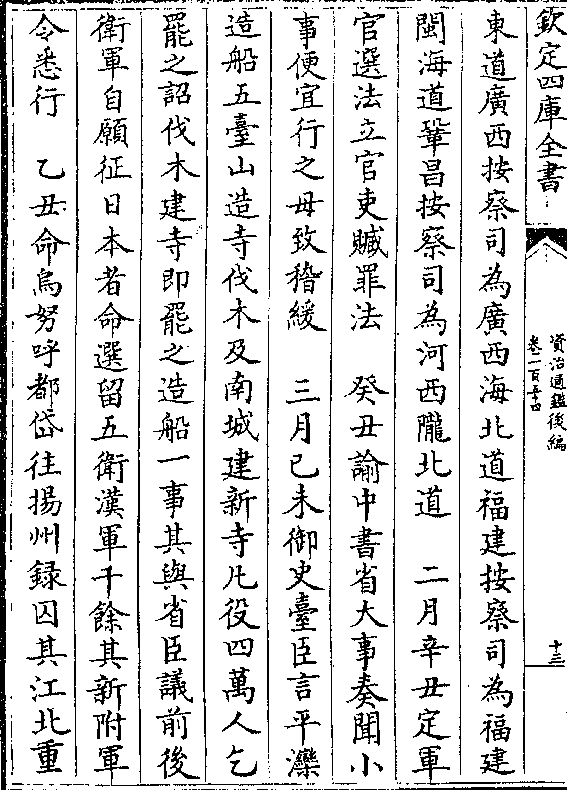 欽定四庫全書
資治通鑑後編
卷一百五十四
十三
東道廣西按察司為廣西海北道福建按察司為福建
閩海道鞏昌按察司為河西隴北道　二月辛丑定軍
官選法立官吏贓罪法　癸丑諭中書省大事奏聞小
事便宜行之毋致稽緩　三月己未御史臺臣言平灤
造船五臺山造寺伐木及南城建新寺凡役四萬人乞
罷之詔伐木建寺即罷之造船一事其與省臣議前後
衛軍自願征日本者命選留五衛漢軍千餘其新附軍
令悉行　乙丑命烏努呼都岱往揚州録囚其江北重